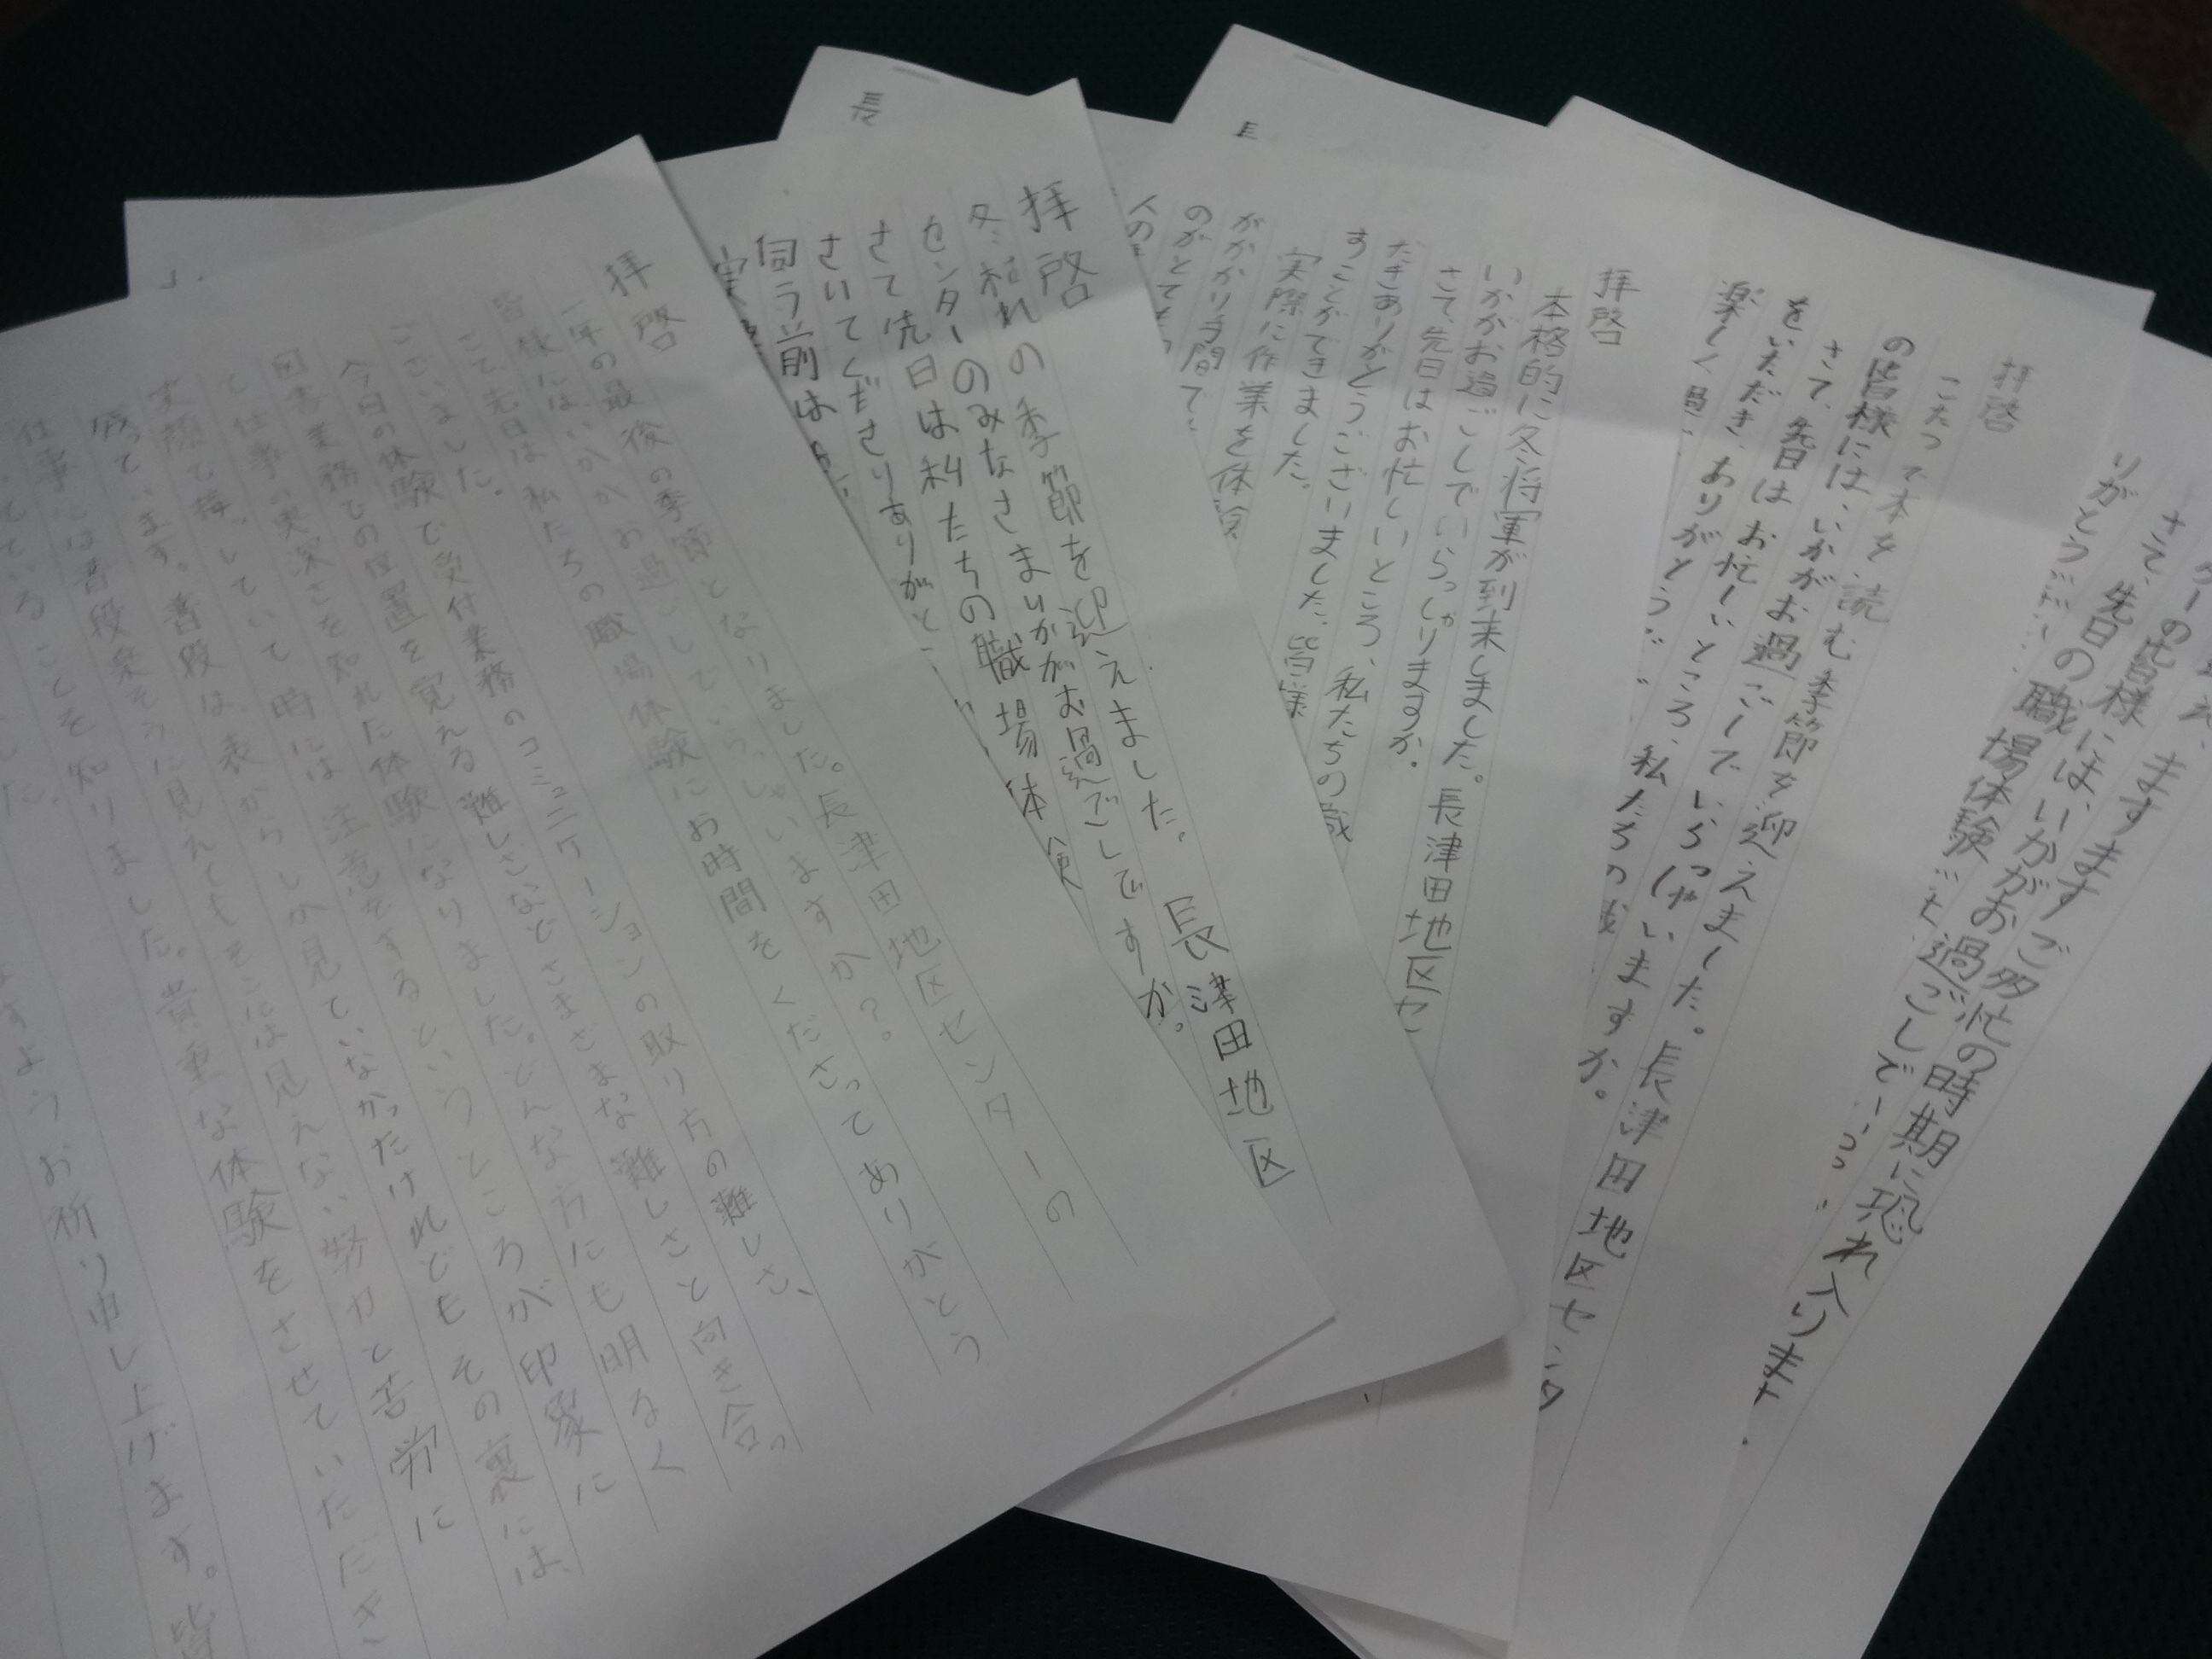 拝啓
一年の最後の季節となりました。長津田地区センターの
皆様には、いかがお過ごしでいらっしゃいますか?。
さて、先日は私たちの職場体験にお時間をくださってありがとう
ございました。
今日の体験で受付業務のコミュニケーションの取り方の難しさ、
図書業務での位置を覚える難しさなどさまざまな難しさと向き合っ
て仕事の奥深さを知れた体験になりました。どんな方にも明るく
笑顔で接していて時には注意をするというところが印象に
残っています。普段は、表からしか見ていなかったけれどもその裏には、
仕事には普段楽そうに見えてもそこには見えない努力と苦労に
していることを知りました。貴重な体験をさせていただき
ました。
ますようお祈り申し上げます。皆
長
拝啓
冬枯れの季節を迎えました。長津田地区
センターのみなさまいかがお過ごしですか。
さて先日は私たちの職場体験
さいてくださりありがと
伺う前は
実
拝啓
本格的に冬将軍が到来しました。長津田地区セ
いかがお過ごしでいらっしゃりますか。
さて、先日はお忙しいところ、私たちの職
だきありがとうございました。皆様
すことができました。
実際に作業を体験
がかかり手間で
のがとても
人の
拝啓
こたつで本を読む季節を迎えました。長津田地区センタ
の皆様には、いかがお過ごしでいらっしゃいますか。
さて、先日はお忙しいところ、私たちの職
をいただき、ありがとう
楽しく過
ますますご多忙の時期に恐れ入ります
ターの皆様には、いかがお過ごしでいらっ
さて、先日の職場体験
りがとう